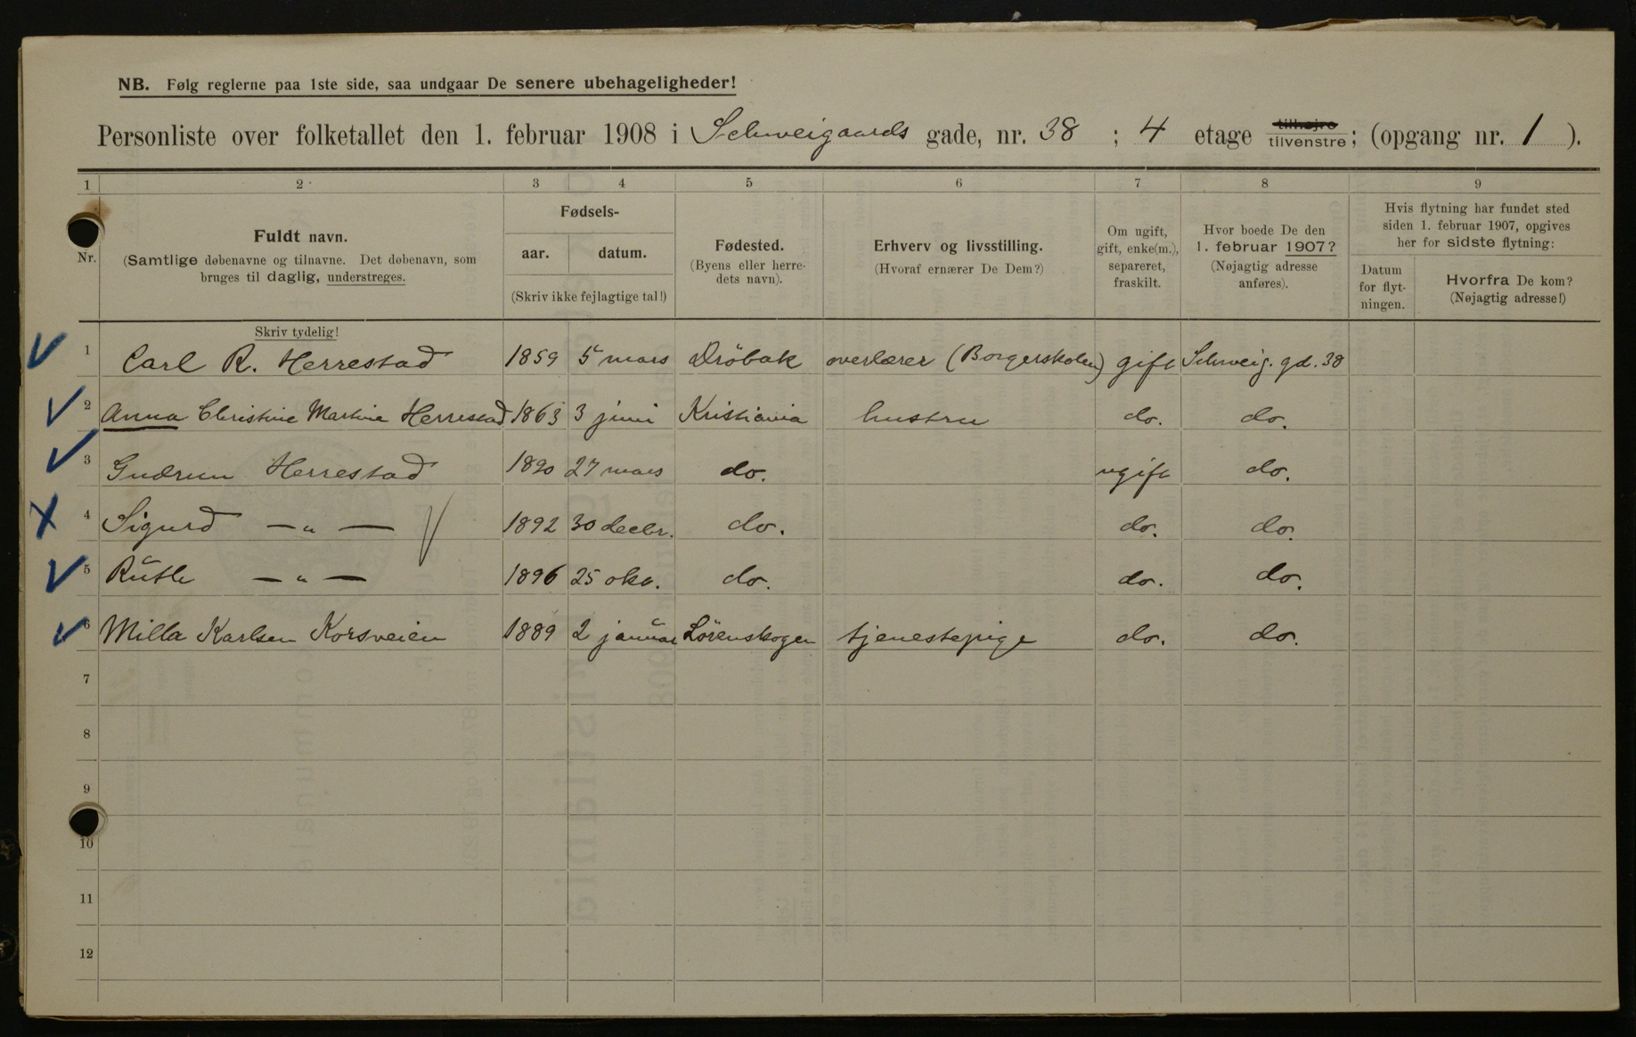 NB. Følg reglerne paa 1ste side, saa undgaar De senere ubehageligheder!
Personliste over folketallet den 1. februar 1908 i Schweigaards gade, nr. 38 ; 4 etage tilhøjre tilvenstre; (opgang nr. 1 ).
1 2 3 4 5 6 7 8 9
Nr.
Fuldt navn.
(Samtlige døbenavne og tilnavne. Det døbenavn, som
bruges til daglig, understreges.
Skriv tydelig!
Fødsels-
aar. datum.
(Skriv ikke fejlagtige tal!)
Fødested.
(Byens eller herre-
dets navn).
Erhverv og livsstilling.
(Hvoraf ernærer De Dem?)
Om ugift,
gift, enke(m.),
separeret,
fraskilt.
Hvor boede De den
1. februar 1907?
(Nøjagtig adresse
anføres).
Hvis flytning har fundet sted
siden 1. februar 1907, opgives
her for sidste flytning:
Datum
for flyt-
ningen.
Hvorfra De kom?
(Nøjagtig adresse!)
1 Carl R. Herrestad 1859 5 mars Drøbak overlærer (Borgerskolen) gift Schweig. gd. 38
2 Anna Christine Martine Herrestad 1863 3 juni Kristiania hustru do. do.
3 Gudrun Herrestad 1890 27 mars do. ugift do.
4 Sigurd — " — 1892 30 decbr. do. do. do.
5 Ruth — " — 1896 25 okt. do. do. do.
6 Milla Karlsen Korsveien 1889 2 januar Lørenskogen tjenestepige do. do.
7
8
9
10
11
12